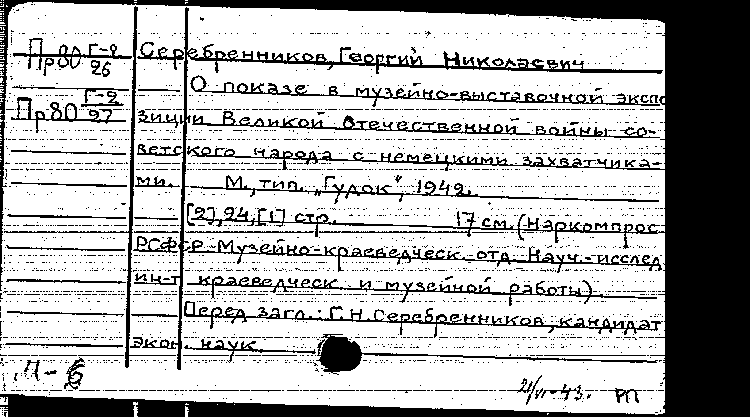 Пр80 Г-2/26 Серебренников, Георгий Николаевич
О показе в музейно-выставочной экспо
Пр80 Г-2/27 зиции Великой Отечественной войны со-
ветского народа с немецкими захватчика-
ми. М., тип. „Гудок", 1942.
[2], 24, [1] стр. 17 см. (Наркомпрос
РСФСР-Музейно-краеведческ. отд. Науч.-исслед
ин-т краеведческ. и музейной работы).
Перед загл.: Г.Н. Серебренников, кандидат
экон. наук.
21/VI-43. РП